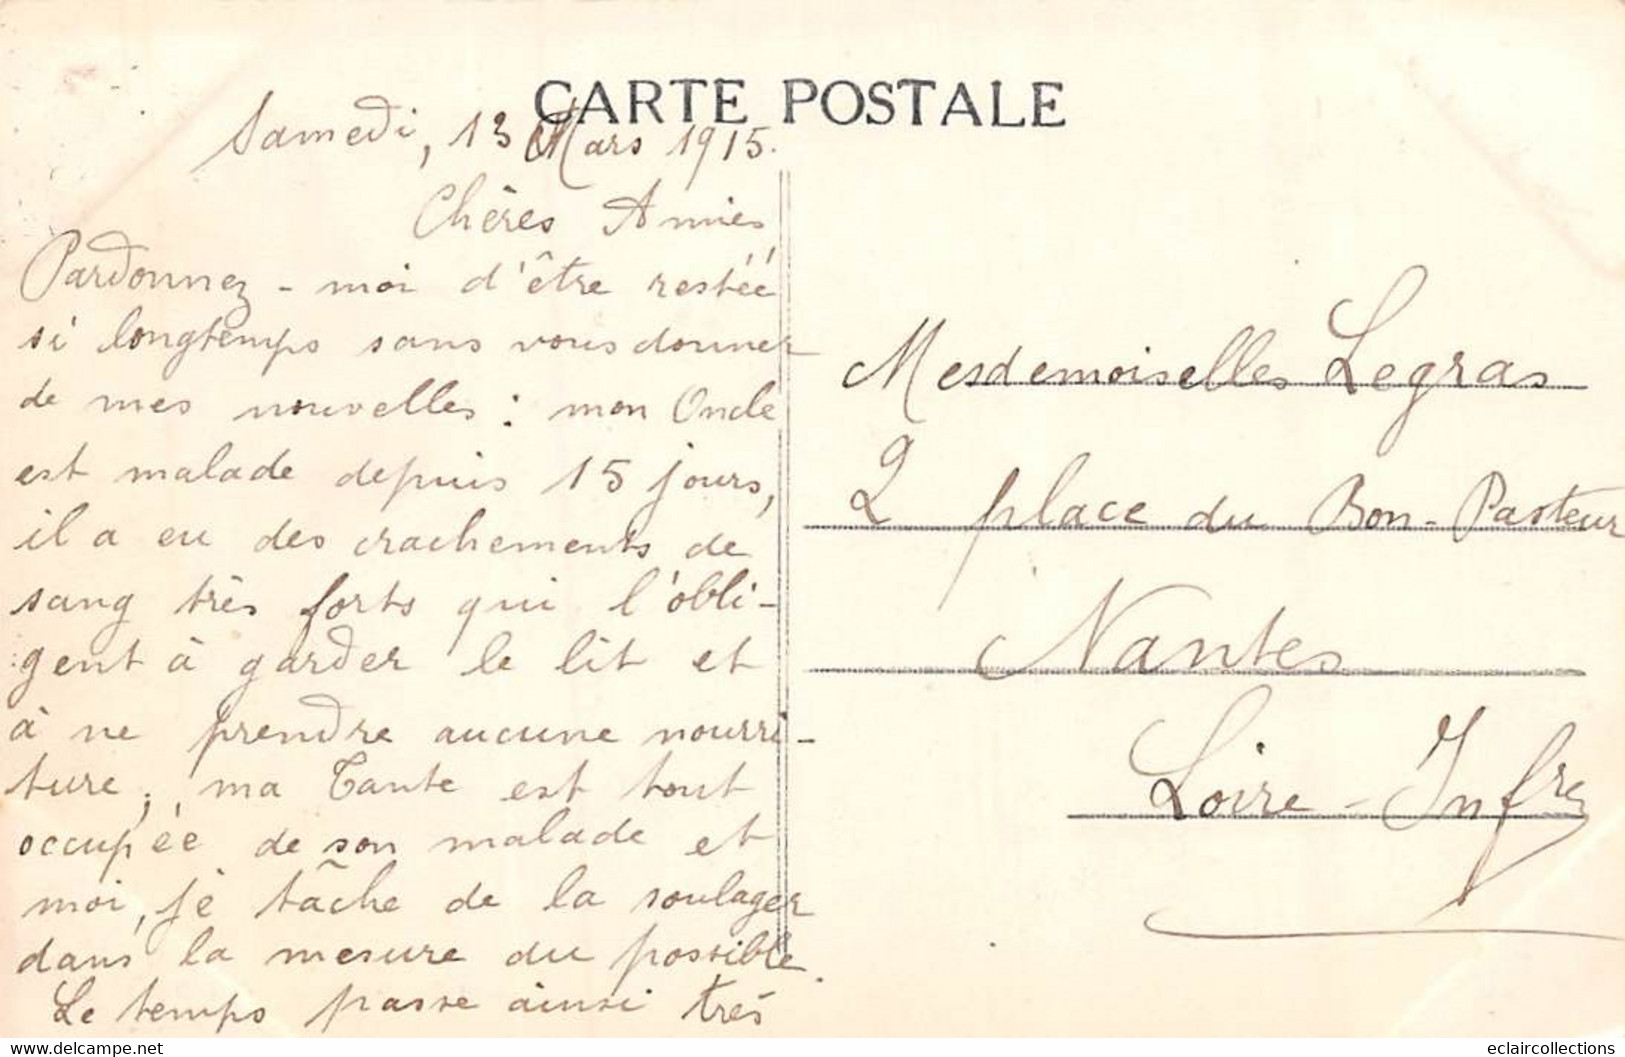 CARTE POSTALE
Samedi, 13 Mars 1915.
Chères Amies
Pardonnez-moi d'être restée
si longtemps sans vous donner
de mes nouvelles : mon Oncle
est malade depuis 15 jours,
il a eu des crachements de
sang très forts qui l'obli-
gent à garder le lit et
à ne prendre aucune nourri-
ture, ma Tante est tout
occupée de son malade et
moi, je tâche de la soulager
dans la mesure du possible.
Le temps passe ainsi très
Mesdemoiselles Legras
2 place du Bon-Pasteur
Nantes
Loire-Infre
delcampe.net
eclaircollections